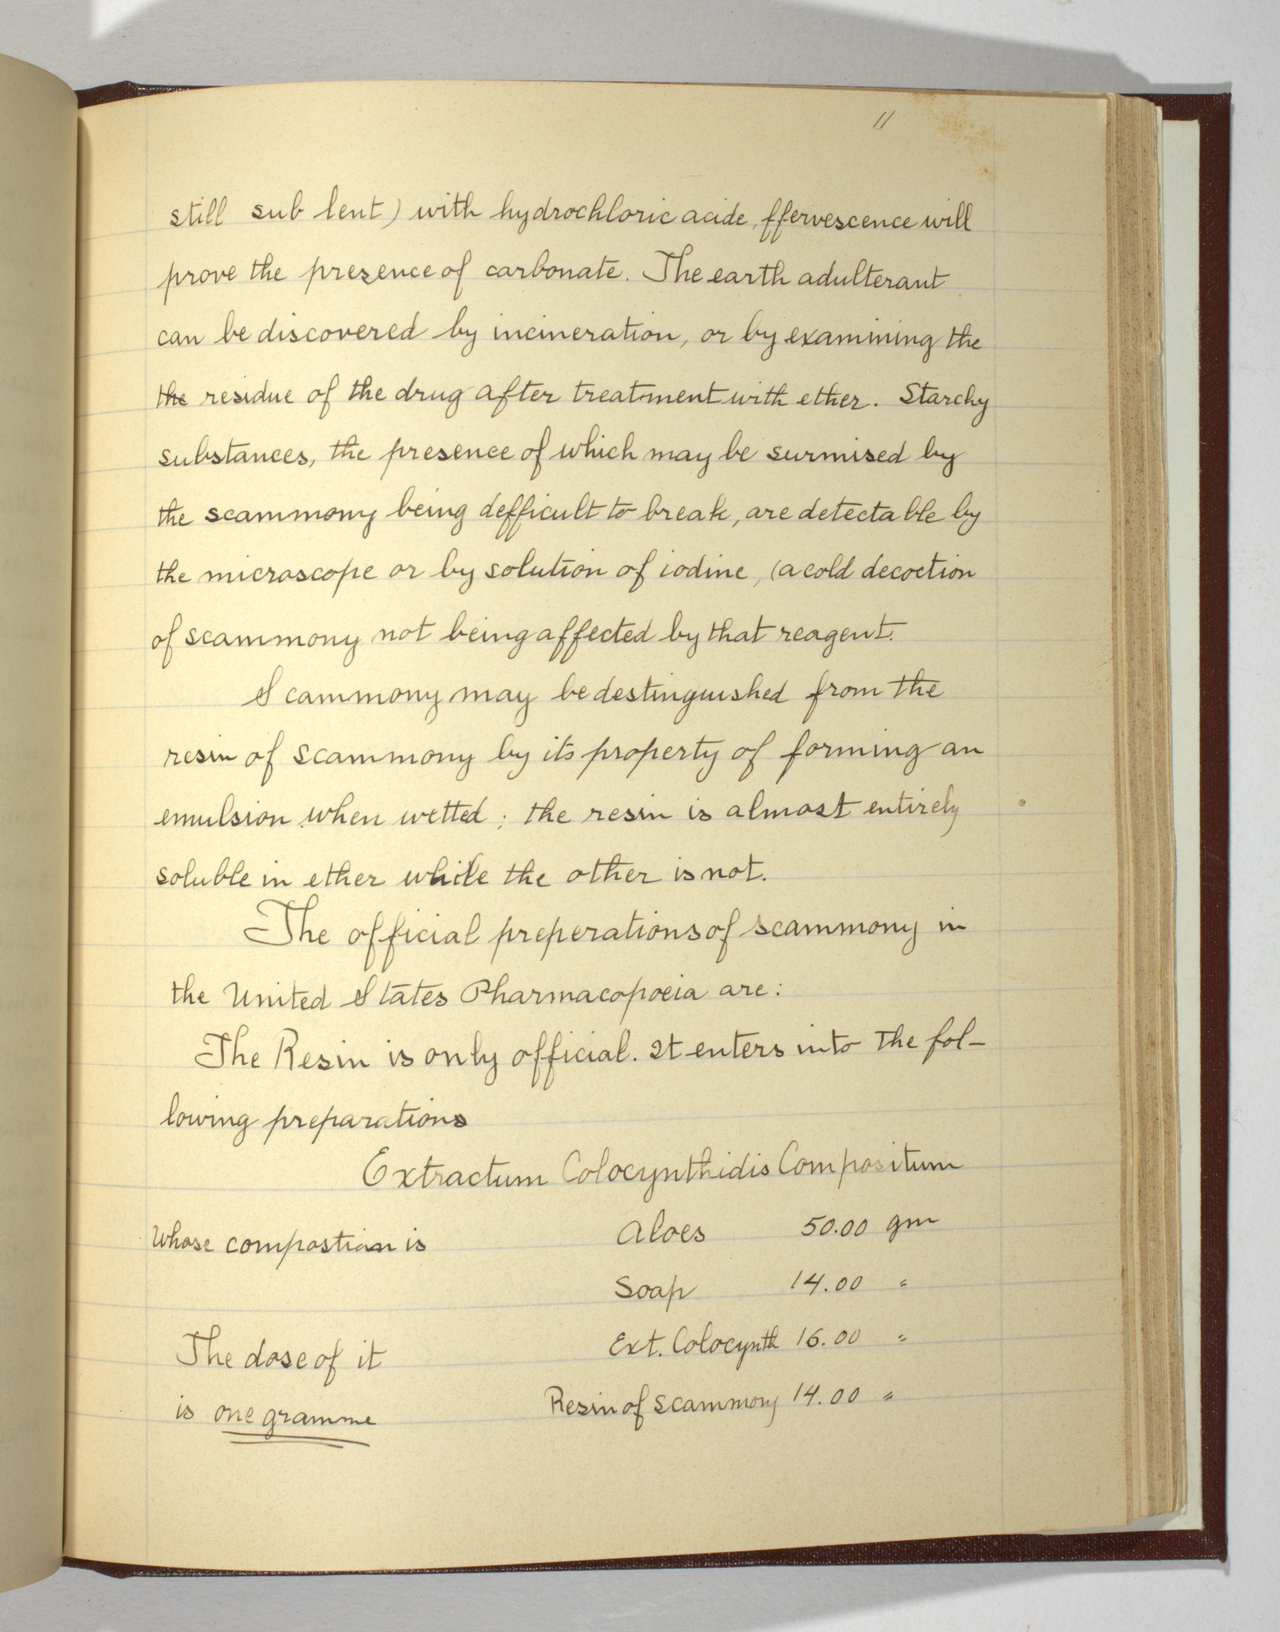 11
still sub lent) with hydrochloric acide, ffervescence will
prove the presence of carbonate. The earth adulterant
can be discovered by incineration, or by examining the
the residue of the drug after treatment with ether. Starchy
substances, the presence of which may be surmised by
the scammony being defficult to break, are detectable by
the microscope or by solution of iodine, (a cold decoction
of scammony not being affected by that reagent.
Scammony may be destinguished from the
resin of scammony by its property of forming an
emulsion when wetted; the resin is almost entirely
soluble in ether while the other is not.
The official preperations of scammony in
the United States Pharmacopoeia are:
The Resin is only official. It enters into the fol-
lowing preparations
Extractum Colocynthidis Compositum
Whose compostion is Aloes 50.00 gm
Soap 14.00 "
The dose of it Ext. Colocynth 16.00 "
is one gramme Resin of scammony 14.00 "